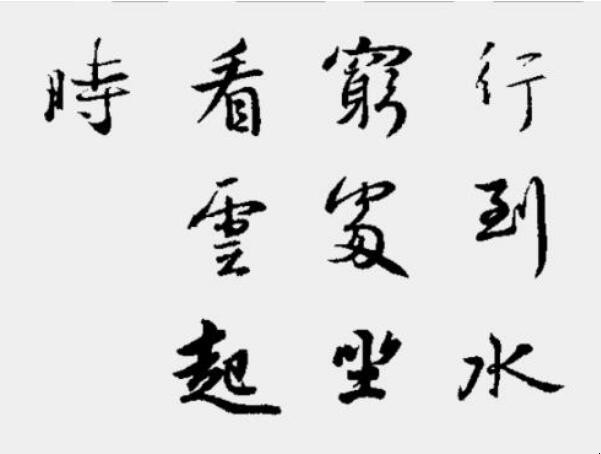 行到水
窮處坐
看雲起
時